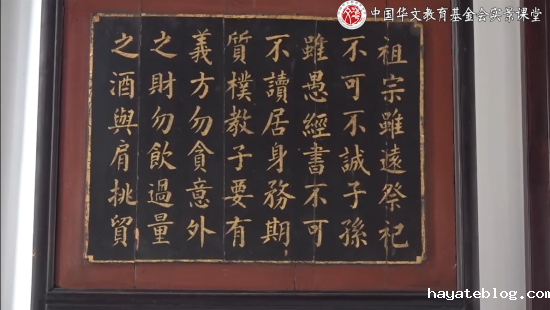 中国华文教育基金会实景课堂
祖宗雖遠祭祀
不可不誠子孫
雖愚經書不可
不讀居身務期
質樸教子要有
義方勿貪意外
之財勿飲過量
之酒與肩挑貿
hayateblog.com